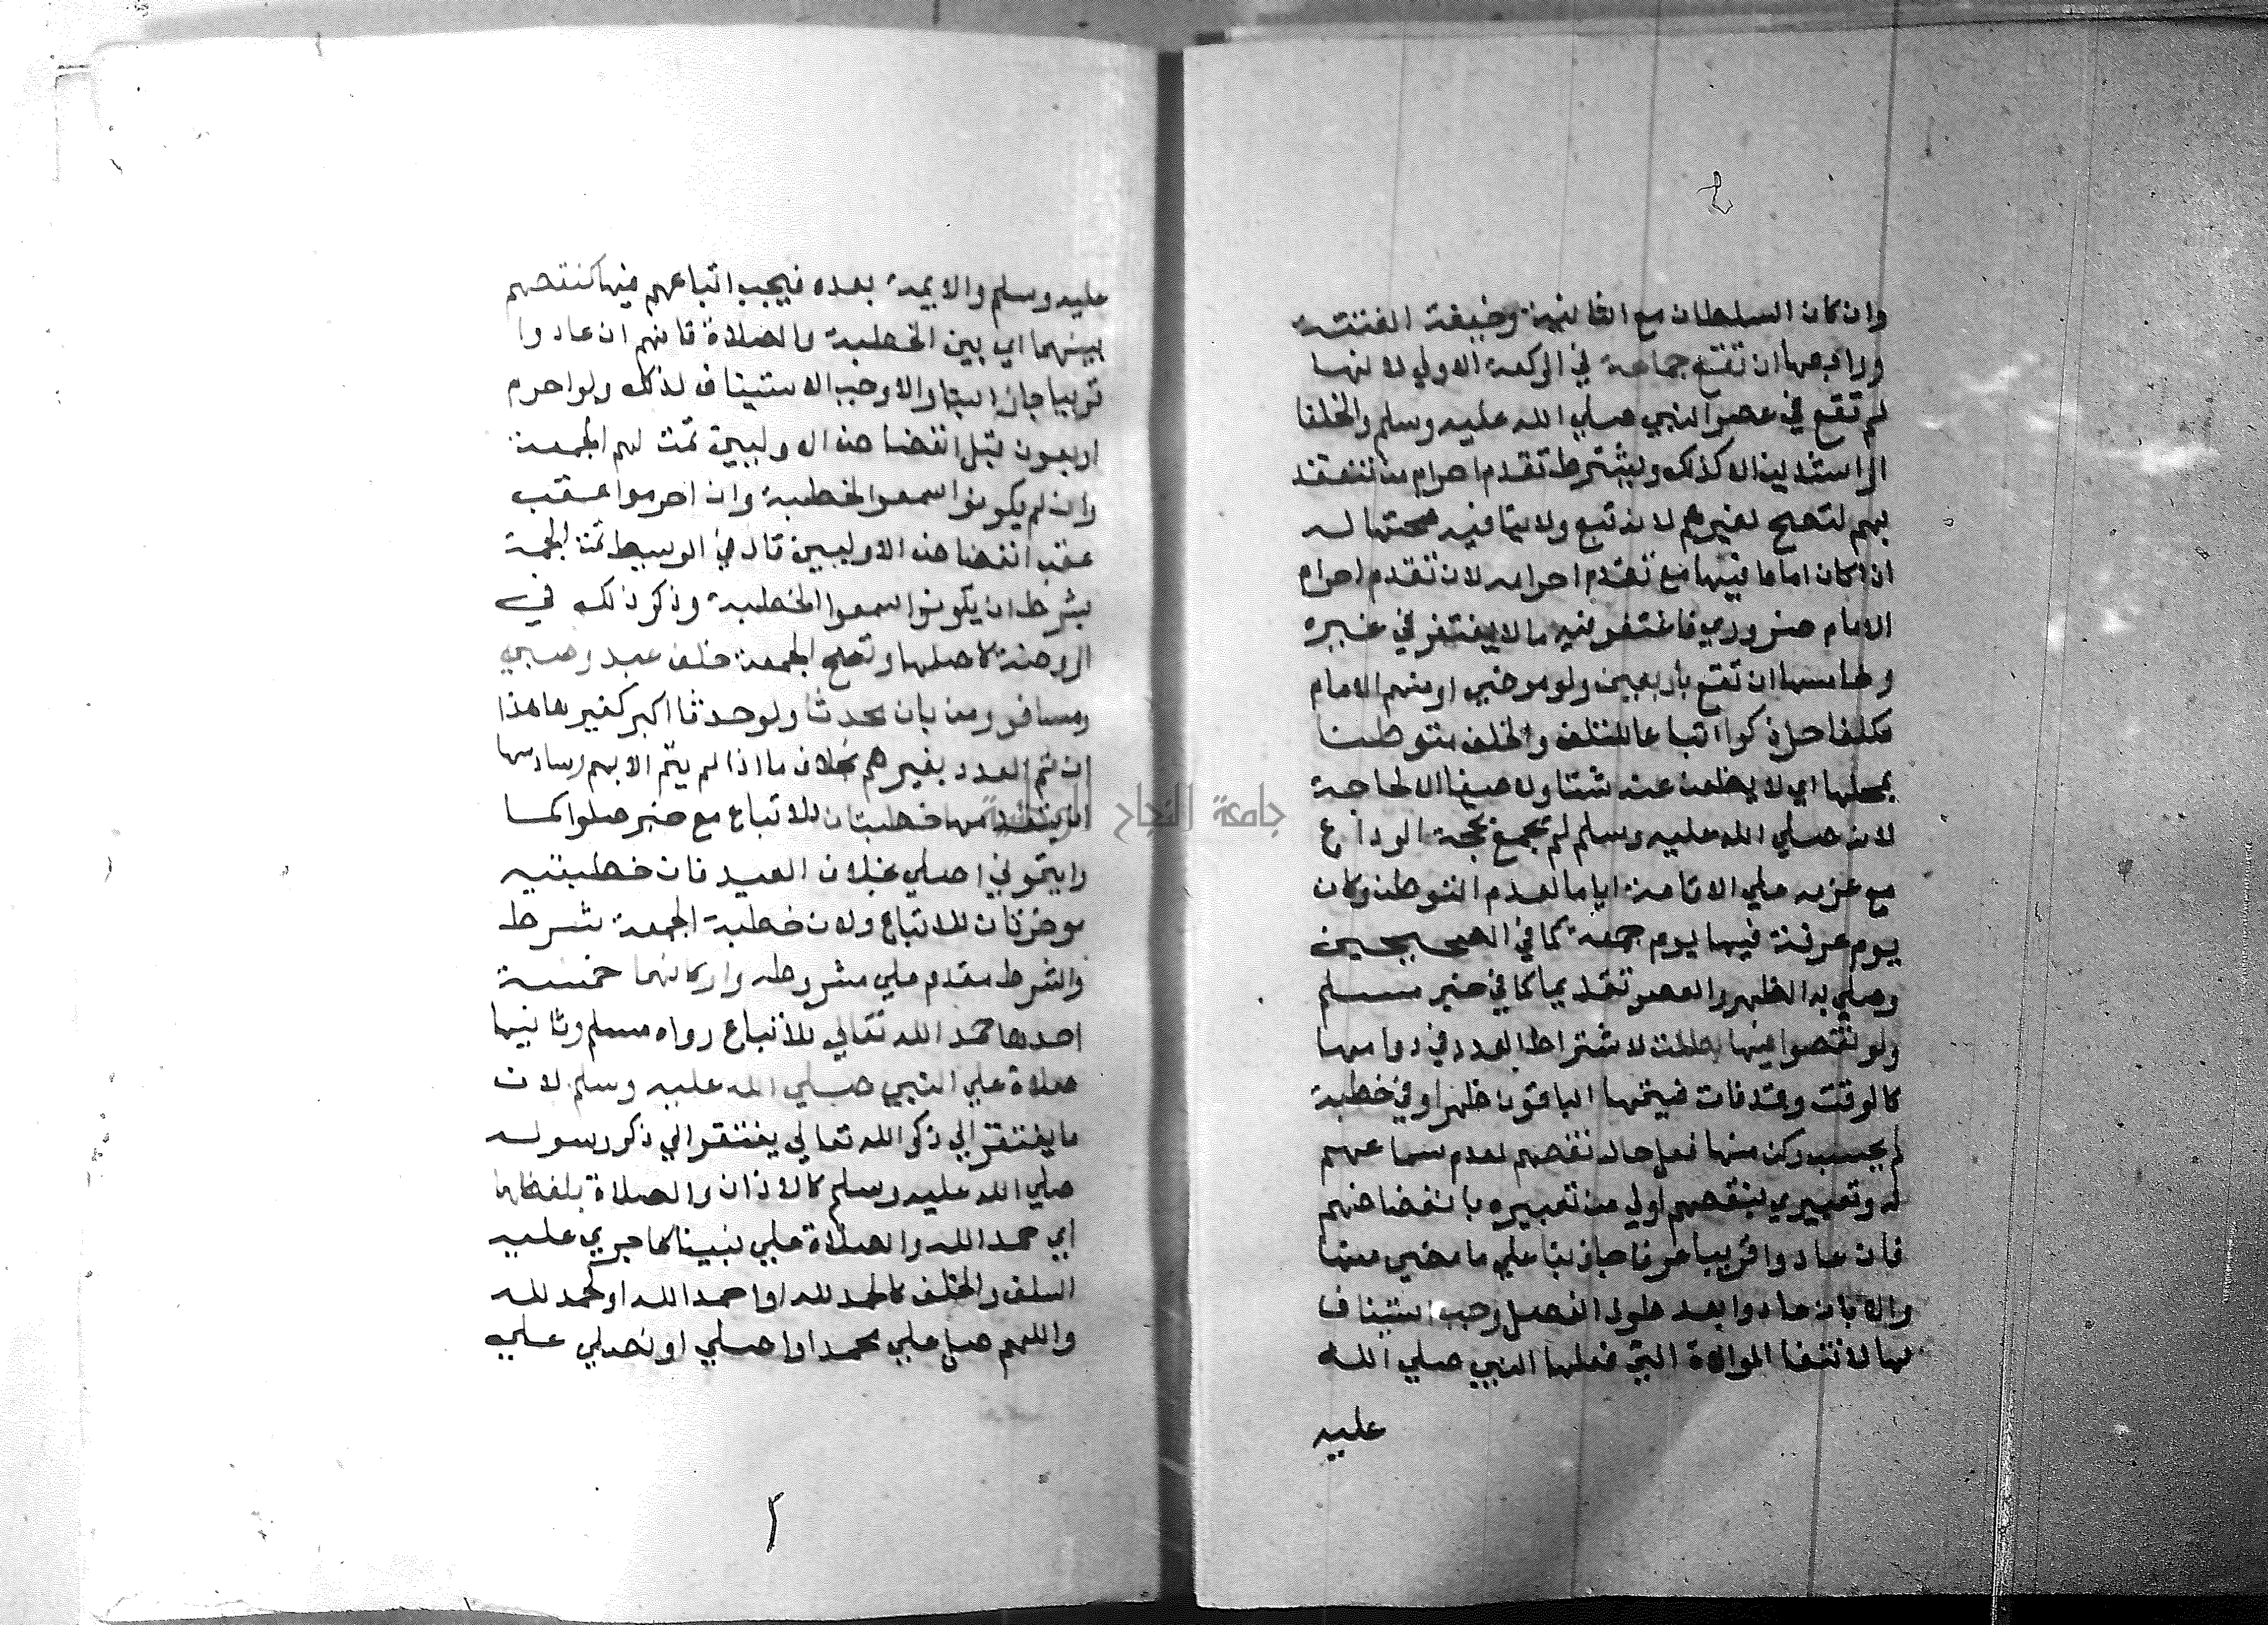 وان كان السلطان مع الثانية وخيفت الفتنة
ورابعها ان تقع جماعة في الركعة الاولي لانها
لم تقع في عصر النبي صلي الله عليه وسلم والخلفا
الراشدين الا كذلك ويشترط تقدم احرام من تنعقد
بهم لتصح لغيرهم لانه تبع ولا ينافيه صحتها له
اذا كان اماما فيها مع تقدم احرامه لان تقدم احرام
الامام ضروري فاغتفر فيه ما لا يغتفر في غيره
وخامسها ان تقع باربعين ولو مرضي او منهم الامام
مكلفا حرا ذكرا اتباعا للسلف والخلف متوطنا
بمحلها اي لا يظعن عنه شتا ولا صيفا الا لحاجة
لانه صلي الله عليه وسلم لم يجمع بحجة الوداع
مع عزمه علي الاقامة اياما لعدم التوطن وكان
يوم عرفة فيها يوم جمعة كما في الصحيحين
وصلي به الظهر والعصر تقديما كما في خبر مسلم
ولو نقصوا فيها بطلت لاشتراط العدد في دوامها
كالوقت وقد فات فيتمها الباقون ظهرا او في خطبة
لم يحسب ركن منها فعل حال نقصهم لعدم سماعهم
له وتعبيري بنقصهم اولي من تعبيره بانفضاضهم
فان عادوا قريبا عرفا جاز بنا علي ما مضي منها
والا بان عادوا بعد طول الفصل وجب استيناف
لها لانتفا الموالاة التي فعلها النبي صلي الله
عليه
عليه وسلم والايمة بعده فيجب اتباعهم فيها كنقصهم
بينهما اي بين الخطبة والصلاة فانهم ان عادوا
قريبا جاز البنا والا وجب الاستيناف لذلك ولو احرم
اربعون قبل انفضاض الاوليين تمت لهم الجمعة
وان لم يكونوا سمعوا الخطبة وان احرموا عقب
عقب انفضاض الاوليين قال في الوسيط تمت الجمعة
بشرط ان يكونوا سمعوا الخطبة وذكر ذلك في
الروضة كاصلها وتصح الجمعة خلف عبد وصبي
ومسافر ومن بان محدثا ولو حدثا اكبر كغيرها هذا
ان تم العدد بغيرهم بخلاف ما اذا لم يتم الا بهم وسادسها
ان يتقدمها خطبتان للاتباع مع خبر صلوا كما
رايتموني اصلي بخلاف العيد فان خطبتيه
موخرتان للاتباع ولان خطبة الجمعة شرط
والشرط مقدم علي مشروطه واركانهما خمسة
احدها حمد الله تعالي للاتباع رواه مسلم وثانيها
صلاة علي النبي صلي الله عليه وسلم لان
ما يفتقر الي ذكر الله تعالي يفتقر الي ذكر رسوله
صلي الله عليه وسلم كالاذان والصلاة بلفظهما
اي حمد الله والصلاة علي نبينا كما جري عليه
السلف والخلف كالحمد لله او احمد الله او نحمد لله
واللهم صل علي محمد او اصلي او نصلي علي
جامعة النجاح الوطنية